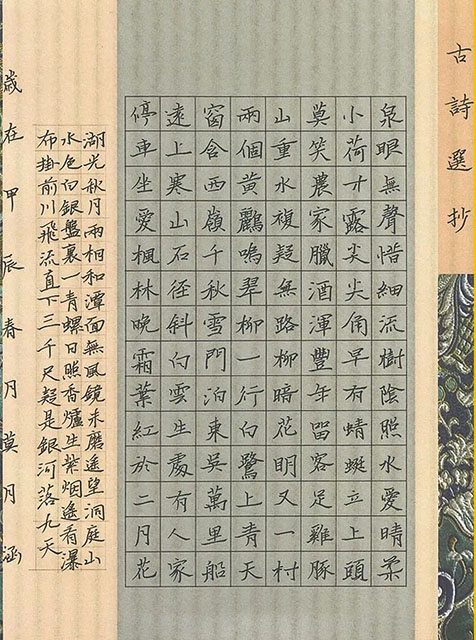 古詩選抄
泉眼無聲惜細流樹陰照水愛晴柔
小荷才露尖尖角早有蜻蜓立上頭
莫笑農家臘酒渾豐年留客足雞豚
山重水複疑無路柳暗花明又一村
兩個黃鸝鳴翠柳一行白鷺上青天
窗含西嶺千秋雪門泊東吳萬里船
遠上寒山石徑斜白雲生處有人家
停車坐愛楓林晚霜葉紅於二月花
湖光秋月兩相和潭面無風鏡未磨遙望洞庭山
水色白銀盤裏一青螺日照香爐生紫烟遙看瀑
布掛前川飛流直下三千尺疑是銀河落九天
歲在甲辰春月莫月涵